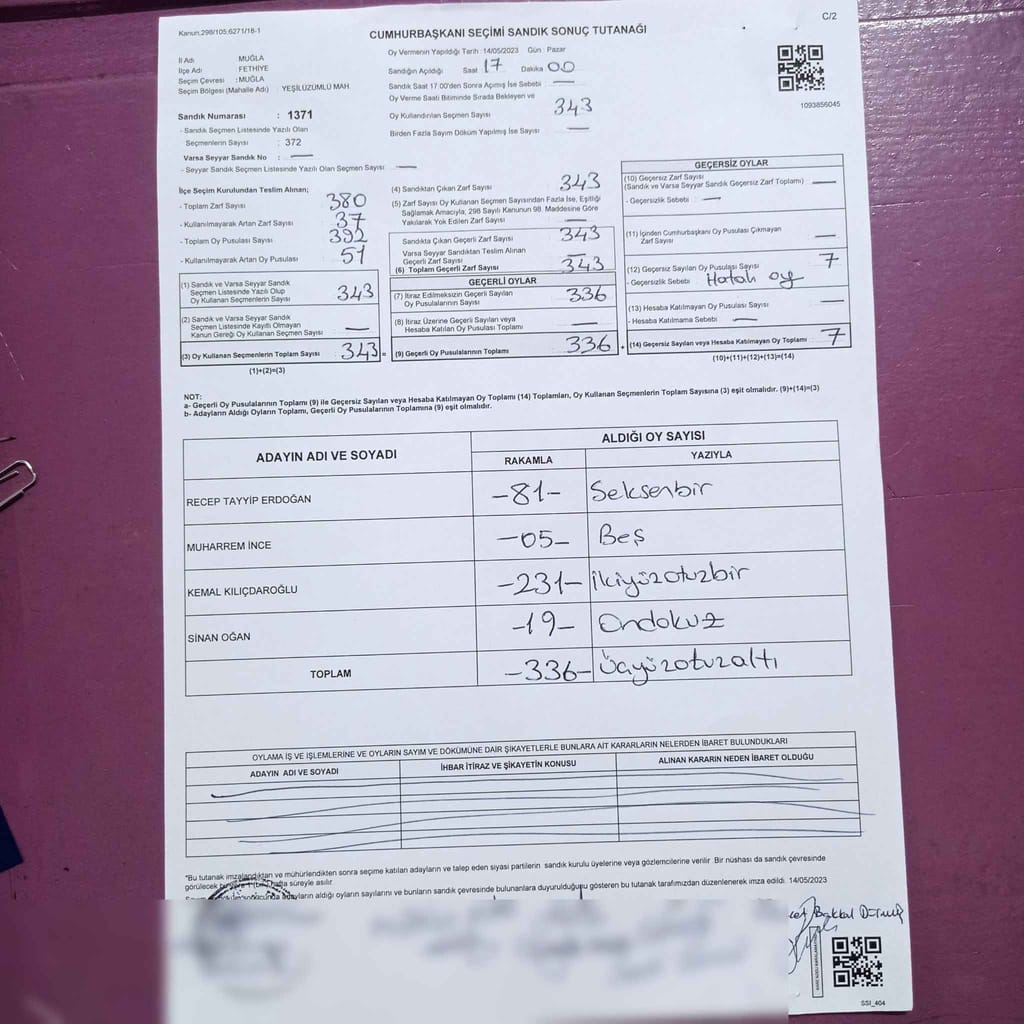 Kanun,298/105,6271/18-1
C/2
CUMHURBAŞKANI SEÇİMİ SANDIK SONUÇ TUTANAĞI
İl Adı MUĞLA
İlçe Adı FETHİYE
Seçim Çevresi : MUĞLA
Seçim Bölgesi (Mahalle Adı) : YEŞİLÜZÜMLÜ MAH.
Oy Vermenin Yapıldığı Tarih : 14/05/2023 Gün : Pazar
Sandığın Açıldığı Saat 17 Dakika 00
Sandık Saat 17.00'den Sonra Açımış İse Sebebi —
Oy Verme Saati Bitiminde Sırada Bekleyen ve
Oy Kullandırılan Seçmen Sayısı 343
Birden Fazla Sayım Döküm Yapılmış İse Sayısı —
1093856045
Sandık Numarası : 1371
- Sandık Seçmen Listesinde Yazılı Olan
Seçmenlerin Sayısı : 372
Varsa Seyyar Sandık No : —
- Seyyar Sandık Seçmen Listesinde Yazılı Olan Seçmen Sayısı —
İlçe Seçim Kurulundan Teslim Alınan;
- Toplam Zarf Sayısı 380
- Kullanılmayarak Artan Zarf Sayısı 37
- Toplam Oy Pusulası Sayısı 392
- Kullanılmayarak Artan Oy Pusulası 51
(1) Sandık ve Varsa Seyyar Sandık
Seçmen Listesinde Yazılı Olup
Oy Kullanan Seçmenlerin Sayısı 343
(2) Sandık ve Varsa Seyyar Sandık
Seçmen Listesinde Kayıtlı Olmayan
Kanun Gereği Oy Kullanan Seçmen Sayısı —
(3) Oy Kullanan Seçmenlerin Toplam Sayısı 343 =
(1)+(2)=(3)
(4) Sandıktan Çıkan Zarf Sayısı 343
(5) Zarf Sayısı Oy Kullanan Seçmen Sayısından Fazla İse, Eşitliği
Sağlamak Amacıyla, 298 Sayılı Kanunun 98. Maddesine Göre
Yakılarak Yok Edilen Zarf Sayısı —
Sandıkta Çıkan Geçerli Zarf Sayısı 343
Varsa Seyyar Sandıktan Teslim Alınan
Geçerli Zarf Sayısı —
(6) Toplam Geçerli Zarf Sayısı 343
GEÇERLİ OYLAR
(7) İtiraz Edilmeksizin Geçerli Sayılan
Oy Pusulalarının Sayısı 336
(8) İtiraz Üzerine Geçerli Sayılan veya
Hesaba Katılan Oy Pusulası Toplamı —
(9) Geçerli Oy Pusulalarının Toplamı 336 +
GEÇERSİZ OYLAR
(10) Geçersiz Zarf Sayısı
(Sandık ve Varsa Seyyar Sandık Geçersiz Zarf Toplamı) —
- Geçersizlik Sebebi —
(11) İçinden Cumhurbaşkanı Oy Pusulası Çıkmayan
Zarf Sayısı —
(12) Geçersiz Sayılan Oy Pusulası Sayısı 7
- Geçersizlik Sebebi Hatalı oy
(13) Hesaba Katılmayan Oy Pusulası Sayısı —
- Hesaba Katılmama Sebebi —
(14) Geçersiz Sayılan veya Hesaba Katılmayan Oy Toplamı 7
(10)+(11)+(12)+(13)=(14)
NOT:
a- Geçerli Oy Pusulalarının Toplamı (9) ile Geçersiz Sayılan veya Hesaba Katılmayan Oy Toplamı (14) Toplamları, Oy Kullanan Seçmenlerin Toplam Sayısına (3) eşit olmalıdır. (9)+(14)=(3)
b- Adayların Aldığı Oyların Toplamı, Geçerli Oy Pusulalarının Toplamına (9) eşit olmalıdır.
ADAYIN ADI VE SOYADI
ALDIĞI OY SAYISI
RAKAMLA YAZIYLA
RECEP TAYYİP ERDOĞAN -81- Seksenbir
MUHARREM İNCE -05- Beş
KEMAL KILIÇDAROĞLU -231- İkiyüzotuzbir
SİNAN OĞAN -19- Ondokuz
TOPLAM -336- Üçyüzotuzaltı
OYLAMA İŞ VE İŞLEMLERİNE VE OYLARIN SAYIM VE DÖKÜMÜNE DAİR ŞİKAYETLERLE BUNLARA AİT KARARLARIN NELERDEN İBARET BULUNDUKLARI
ADAYIN ADI VE SOYADI İHBAR İTİRAZ VE ŞİKAYETİN KONUSU ALINAN KARARIN NEDEN İBARET OLDUĞU
*Bu tutanak imzalandıktan ve mühürlendikten sonra seçime katılan adayların ve talep eden siyasi partilerin sandık kurulu üyelerine veya gözlemcilerine verilir. Bir nüshası da sandık çevresinde
görülecek bir yere 1 (bir) hafta süreyle asılır.
adayların aldığı oyların sayılarını ve bunların sandık çevresinde bulunanlara duyurulduğunu gösteren bu tutanak tarafımızdan düzenlenerek imza edildi. 14/05/2023
Bakkal
SSI_404